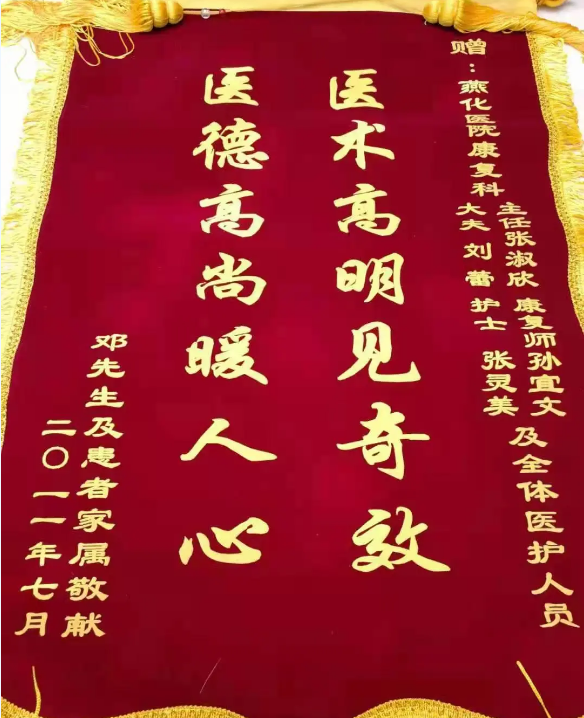 赠：燕化医院康复科
主任张淑欣 康复师孙宜文
大夫 刘蕾 护士 张灵美
及全体医护人员
医术高明见奇效
医德高尚暖人心
邓先生及患者家属敬献
二〇一一年七月